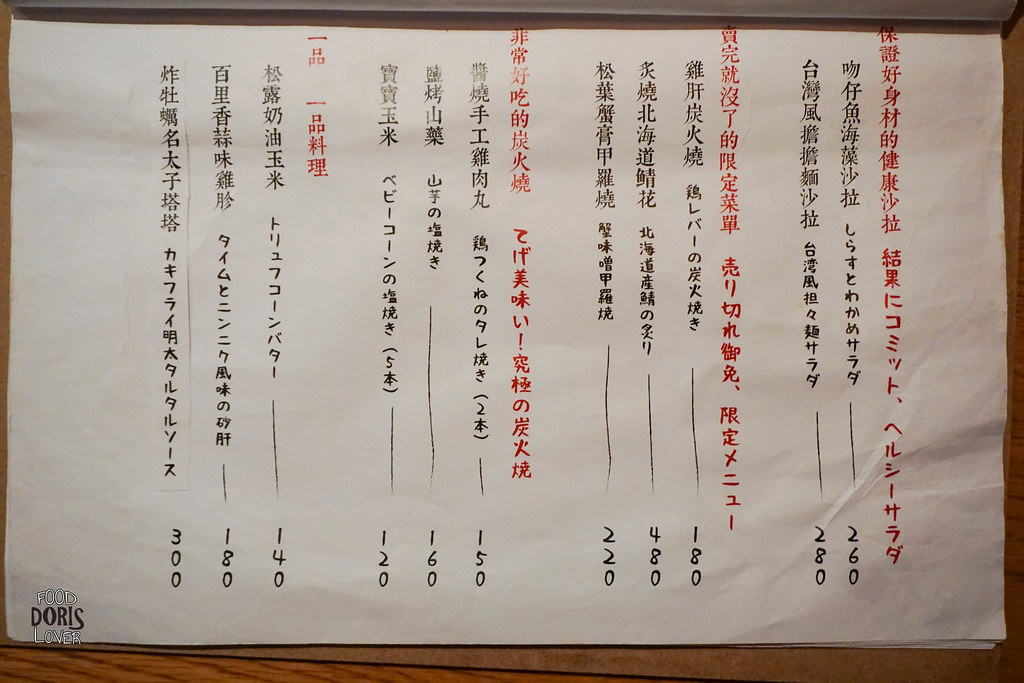 保證好身材的健康沙拉 結果にコミット、ヘルシーサラダ
吻仔魚海藻沙拉 しらすとわかめサラダ 260
台灣風擔擔麵沙拉 台湾風担々麺サラダ 280
賣完就沒了的限定菜單 売り切れ御免、限定メニュー
雞肝炭火燒 鶏レバーの炭火焼き 180
炙燒北海道鯖花 北海道産鯖の炙り 480
松葉蟹膏甲羅燒 蟹味噌甲羅焼 220
非常好吃的炭火燒 てげ美味い!究極の炭火焼
醬燒手工雞肉丸 鶏つくねのタレ焼き(2本) 150
鹽烤山藥 山芋の塩焼き 160
寶寶玉米 ベビーコーンの塩焼き(5本) 120
一品 一品料理
松露奶油玉米 トリュフコーンバター 140
百里香蒜味雞胗 タイムとニンニク風味の砂肝 180
炸牡蠣名太子塔塔 カキフライ明太タルタルソース 300
FOOD
DORIS
LOVER